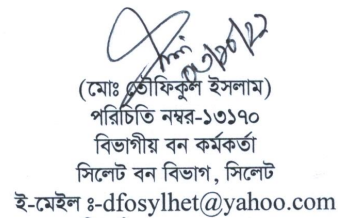 (মোঃ তৌফিকুল ইসলাম)
পরিচিতি নম্বর-১৩১৭০
বিভাগীয় বন কর্মকর্তা
সিলেট বন বিভাগ, সিলেট
ই-মেইল ঃ-dfosylhet@yahoo.com